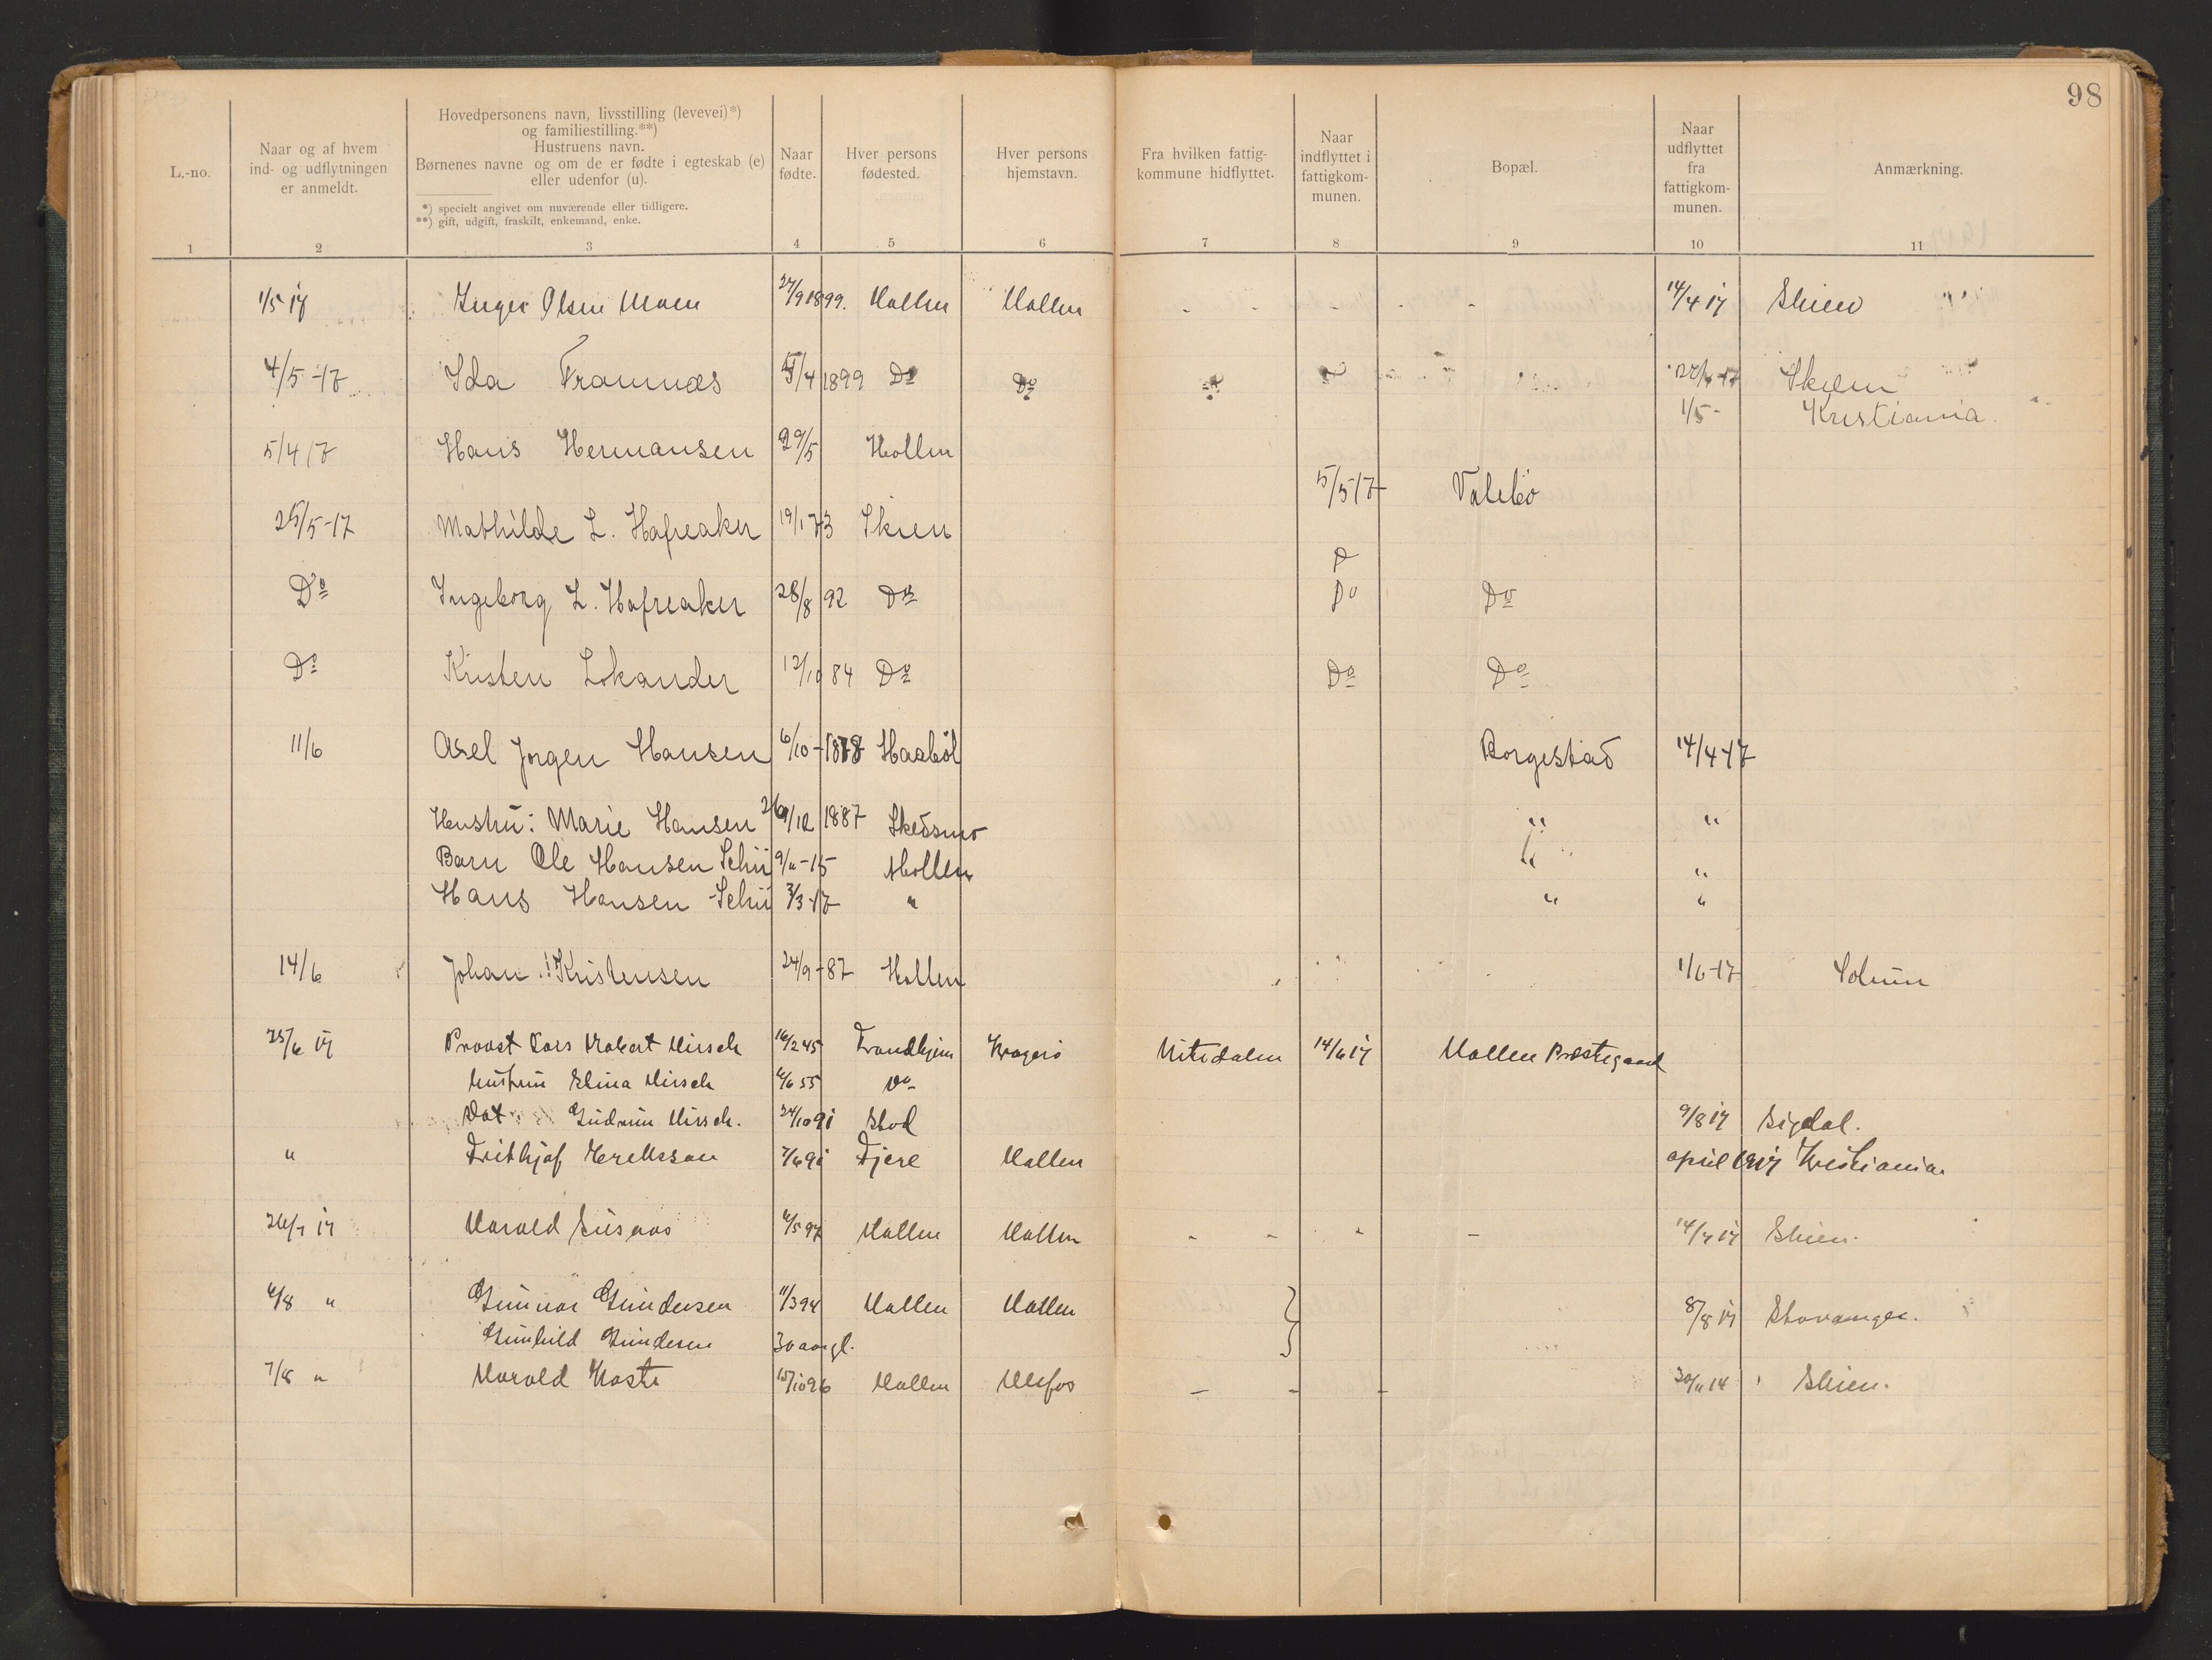 98
L.-no.
Naar og af hvem
ind- og udflytningen
er anmeldt.
Hovedpersonens navn, livsstilling (levevei)*)
og familiestilling.**)
Hustruens navn.
Børnenes navne og om de er fødte i egteskab (e)
eller udenfor (u).
*) specielt angivet om nuværende eller tidligere.
**) gift, udgift, fraskilt, enkemand, enke.
Naar
fødte.
Hver persons
fødested.
Hver persons
hjemstavn.
Fra hvilken fattig-
kommune hidflyttet.
Naar
indflyttet i
fattigkom-
munen.
Bopæl.
Naar
udflyttet
fra
fattigkom-
munen.
Anmærkning.
1 2 3 4 5 6 7 8 9 10 11
1/5 17 Inger Olsen Moen 27/9 1899. Hollen Hollen - - - - - 14/4 17 Skien
4/5-17 Ida Framnæs /4 1899 Do Do Skien
1/5- Kristiania.
5/4 17 Hans Hermansen 29/5 Hollen
5/5 17 Valebø
25/5-17 Mathilde L. Hafreaker 19/1 73 Skien
Do Ingeborg L. Hafreaker 28/8 92 Do Do Do
Do Kristen Lokander 12/10 84 Do Do Do
11/6 Axel Jørgen Hansen 6/10-1878 Haabøl Borgestad 14/4-17
Hustru: Marie Hansen /12 1887 Skedsmo " "
Barn Ole Hansen 9/11-15 Hollen " "
Hans Hansen 3/3-17 " " "
14/6 Johan Kristensen 24/9-87 Hollen 1/6-17 Solum
25/6 17 Provst Lars Robert Hirsch 16/2 45 Trondhjem Kragerø Nitedalen 14/6 17 Hollen Præstegaard
Hustru Elina Hirsch 4/6 55 Do
Dat. Gudrun Hirsch. 24/10 91 Stod 9/8 17 Sigdal.
" Frithjof Hereksson 7/6 91 Fjere Hollen april 1917 Kristiania.
26/7 17 Harold 4/5 97 Hollen Hollen - - - - 14/7 17 Skien.
4/8 " Gunnar Gundersen 11/3 94 Hollen Hollen 8/8 17 Stavanger.
Gunhild Gundersen 30 aar gl.
7/8 " Harold Kaste 15/10 96 Hollen Ulefos - - - 30/4 14 Skien.